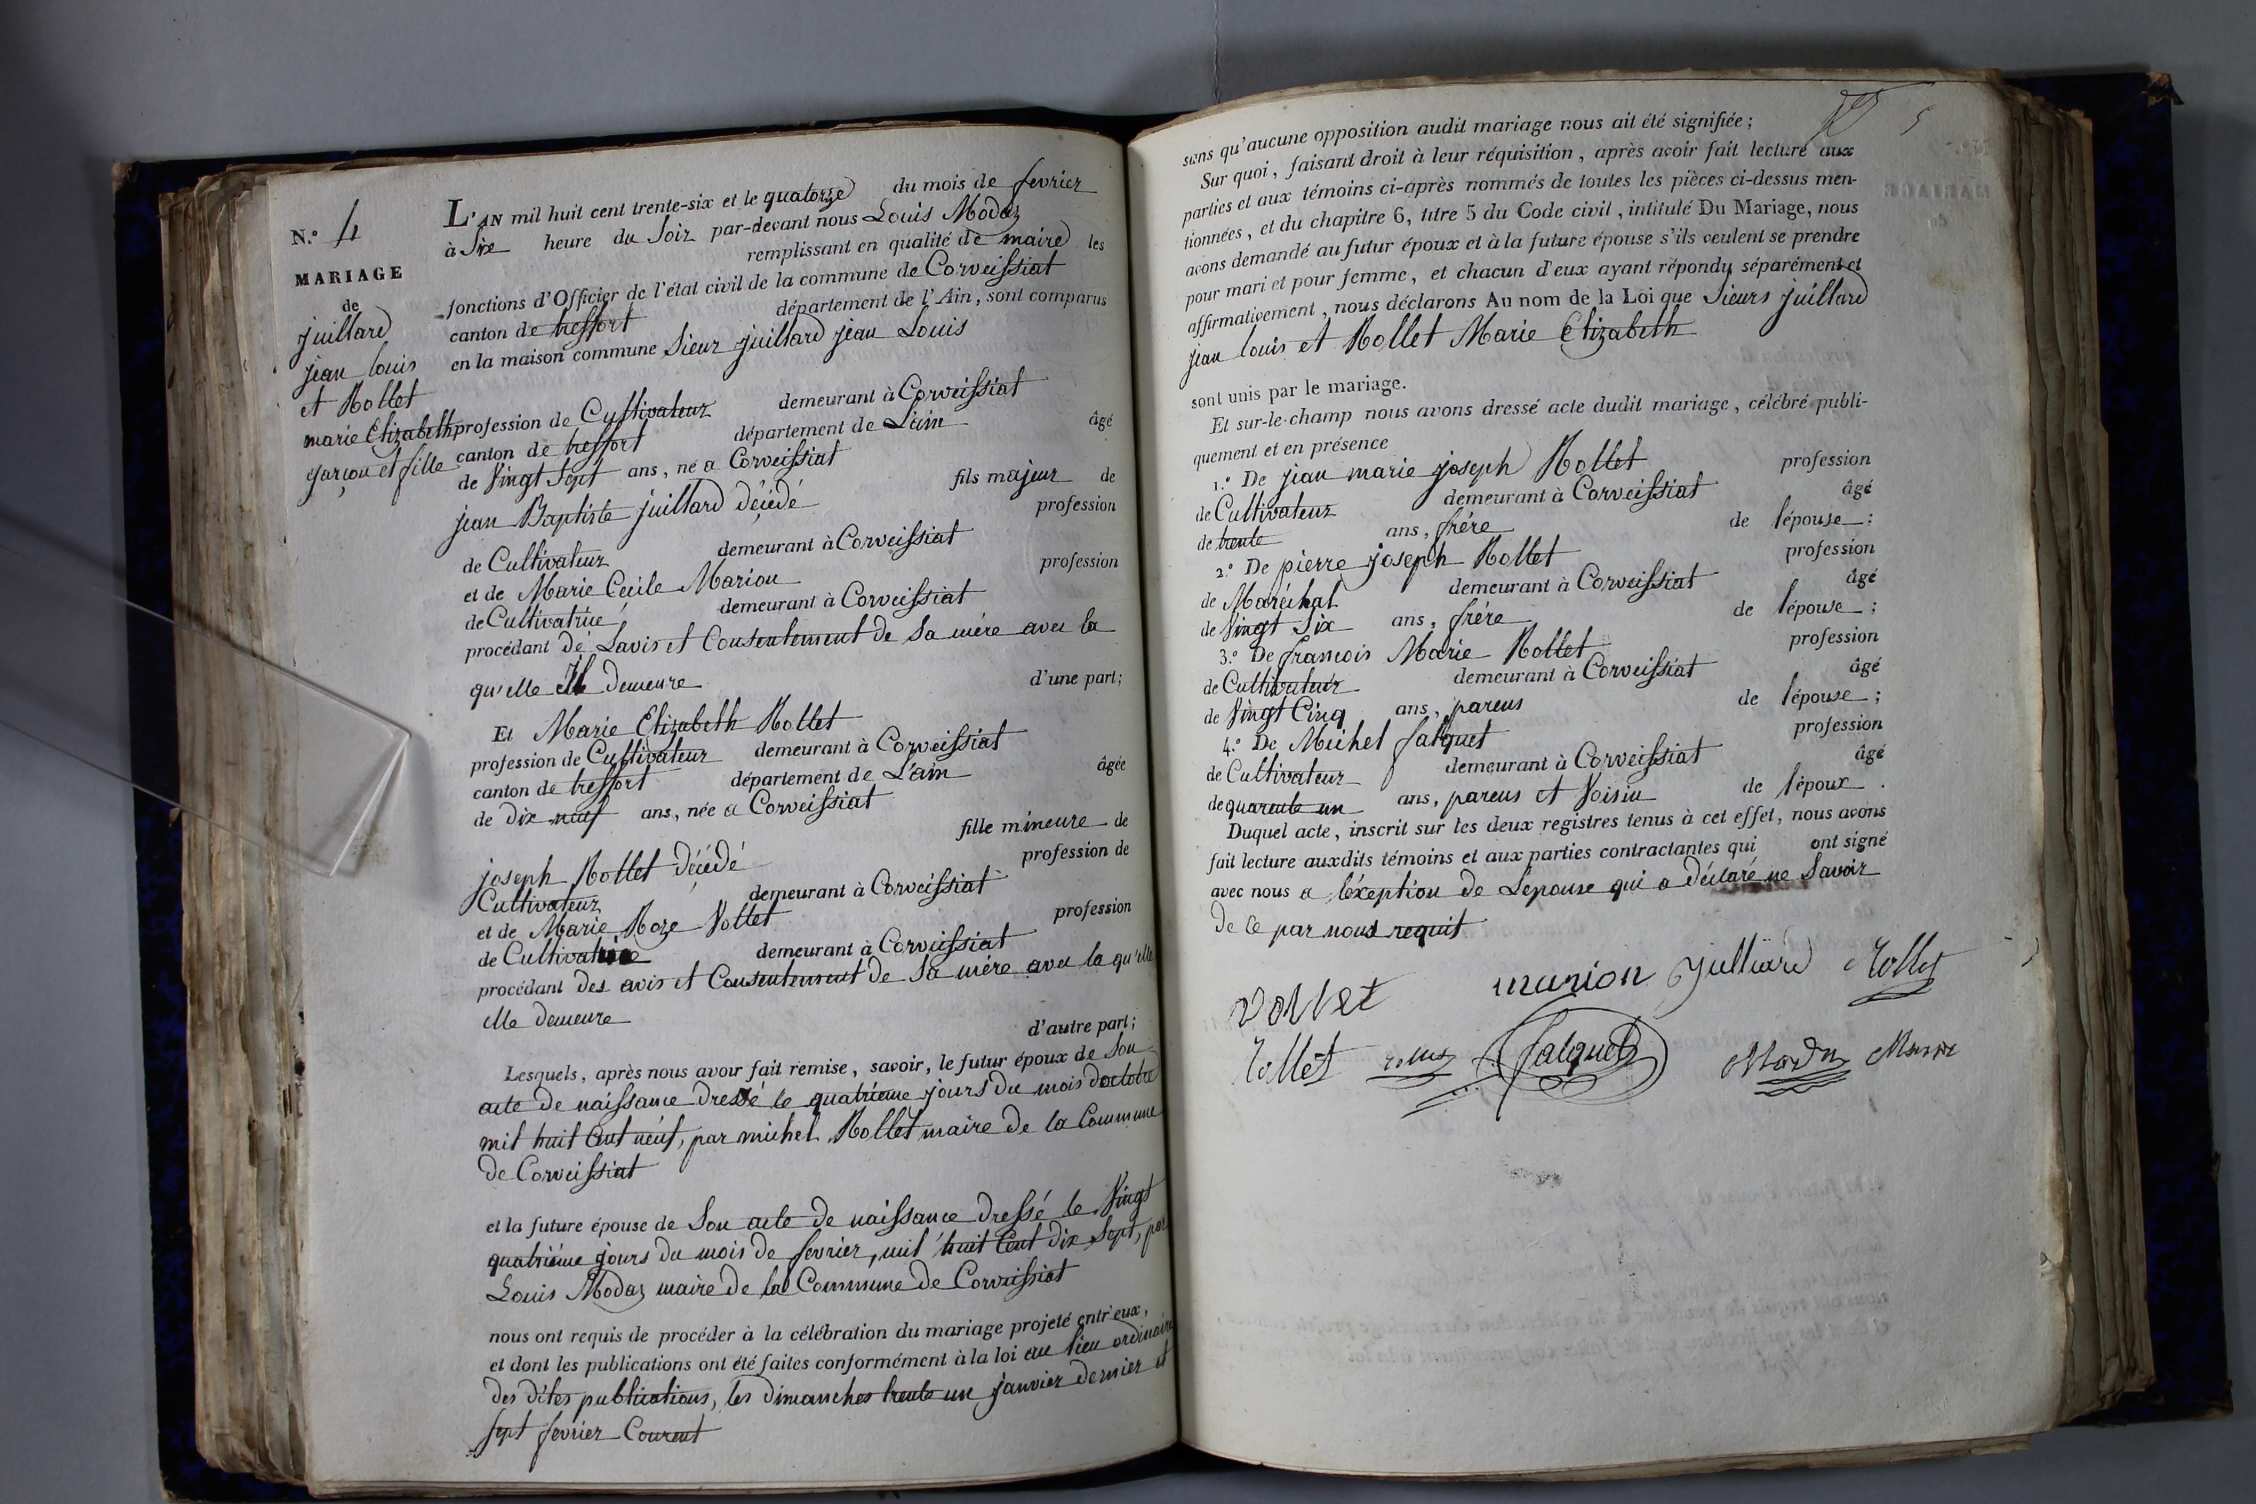 N.º 4
MARIAGE
de
juillard
jean louis
et Rollet
marie Elizabeth
garçon et fille
L'AN mil huit cent trente-six et le quatorze du mois de fevrier
à Six heure du Soir par-devant nous Louis Modaz
remplissant en qualité de maire les
fonctions d'Officier de l'état civil de la commune de Corveissiat
canton de treffort département de l'Ain, sont comparus
en la maison commune Sieur juillard jean Louis
profession de Cultivateur demeurant à Corveissiat
canton de treffort département de L'ain âgé
de Vingt Sept ans, né a Corveissiat
fils majeur de
jean Baptiste juillard décédé profession
de Cultivateur demeurant à Corveissiat
et de Marie Cecile Marion profession
de Cultivatrice demeurant à Corveissiat
procédant de Lavis et Consentement de Sa mére avec la
qu'elle Il demeure d'une part;
Et Marie Elizabeth Rollet
profession de Cultivateur demeurant à Corveissiat
canton de treffort département de L'ain âgée
de dix neuf ans, née a Corveissiat
fille mineure de
joseph Rollet décédé profession de
Cultivateur demeurant à Corveissiat
et de Marie Roze Vollet profession
de Cultivatrice demeurant à Corveissiat
procédant des avis et Consentement de Sa mére avec la qu'elle
elle demeure
d'autre part;
Lesquels, après nous avoir fait remise, savoir, le futur époux de Son
acte de naissance dressé le quatriéme jours du mois doctobre
mil huit Cent neuf, par michel Rollet maire de la Commune
de Corveissiat
et la future épouse de Son acte de naissance dressé le Vingt
quatriéme jours du mois de fevrier, mil huit Cent dix Sept, par
Louis Modaz maire de la Commune de Corveissiat
nous ont requis de procéder à la célébration du mariage projeté entr'eux,
et dont les publications ont été faites conformément à la loi au lieu ordinaire
des dites publications, les dimanches trente un janvier dernier et
Sept fevrier Courent
5
sans qu'aucune opposition audit mariage nous ait été signifiée;
Sur quoi, faisant droit à leur réquisition, après avoir fait lecture aux
parties et aux témoins ci-après nommés de toutes les pièces ci-dessus men-
tionnées, et du chapitre 6, titre 5 du Code civil, intitulé Du Mariage, nous
avons demandé au futur époux et à la future épouse s'ils veulent se prendre
pour mari et pour femme, et chacun d'eux ayant répondu séparément et
affirmativement, nous déclarons Au nom de la Loi que Sieurs juillard
jean louis et Rollet Marie Elizabeth
sont unis par le mariage.
Et sur-le-champ nous avons dressé acte dudit mariage, célébré publi-
quement et en présence
1.º De jean marie joseph Rollet profession
de Cultivateur demeurant à Corveissiat âgé
de trente ans, frére de lépouse:
2.º De pierre joseph Rollet profession
de Maréchal demeurant à Corveissiat âgé
de Vingt Six ans, frére de lépouse;
3.º De francois Marie Rollet profession
de Cultivateur demeurant à Corveissiat âgé
de Vingt Cinq ans, parens de lépouse;
4.º De Michel falquet profession
de Cultivateur demeurant à Corveissiat âgé
de quarente un ans, parens et Voisin de lépoux.
Duquel acte, inscrit sur les deux registres tenus à cet effet, nous avons
fait lecture auxdits témoins et aux parties contractantes qui ont signé
avec nous a léxeption de Lepouse qui a déclaré ne Savoir
de ce par nous requit
vollet marion juilliard Rollet
Rollet falquet Modaz Maire